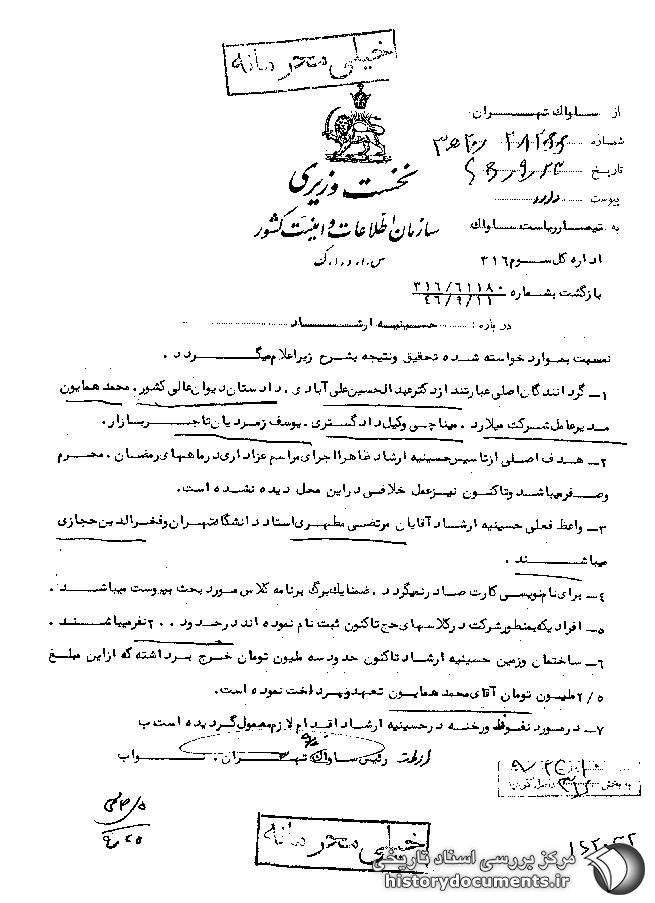 خیلی محرمانه
از ساواک تهران
شماره
تاریخ
پیوست دارد
نخست وزیری
به تیمسار ریاست ساواک
سازمان اطلاعات و امنیت کشور
س.ا.و.ا.ک
اداره کل سوم ۳۱۶
بازگشت بشماره ۳۱۶/۶۱۱۸۰
۴۶/۹/۱۱
درباره : حسینیه ارشاد
نسبت بموارد خواسته شده تحقیق ونتیجه بشرح زیراعلام میگردد .
۱- گردانندگان اصلی عبارتند ازدکترعبدالحسین علی آبادی . دادستان دیوان عالی کشور. محمد همایون
مدیرعامل شرکت میلارد . میناچی وکیل دادگستری . یوسف زمردیان تاجر بازار.
۲- هدف اصلی ازتاسیس حسینیه ارشاد ظاهرا اجرای مراسم عزاداری درماههای رمضان . محرم
وصفرمیباشد وتاکنون نیزعمل خلافی دراین محل دیده نشده است.
۳- واعظ فعلی حسینیه ارشاد آقایان مرتضی مطهری استاد دانشگاه تهران وفخرالدین حجازی
میباشند .
۴- برای نام نویسی کارت صادرنمیگردد . ضمنا یکبرگ برنامه کلاس مورد بحث پیوست میباشد .
۵- افرادیکه بمنظورشرکت درکلاسهای حج تاکنون ثبت نام نموده اند درحدود ۲۰۰ نفرمیباشند .
۶- ساختمان وزمین حسینیه ارشاد تاکنون حدود سه ملیون تومان خرج برداشته که ازاین مبلغ
۲/۵ ملیون تومان آقای محمد همایون تعهد وپرداخت نموده است.
۷- درمورد نفوذ ورخنه درحسینیه ارشاد اقدام لازم معمول گردیده است ب
رئیس ساواک تهران . نواب
به بخش ۳۱۶
خیلی محرمانه
مرکز بررسی اسناد تاریخی
historydocuments.ir